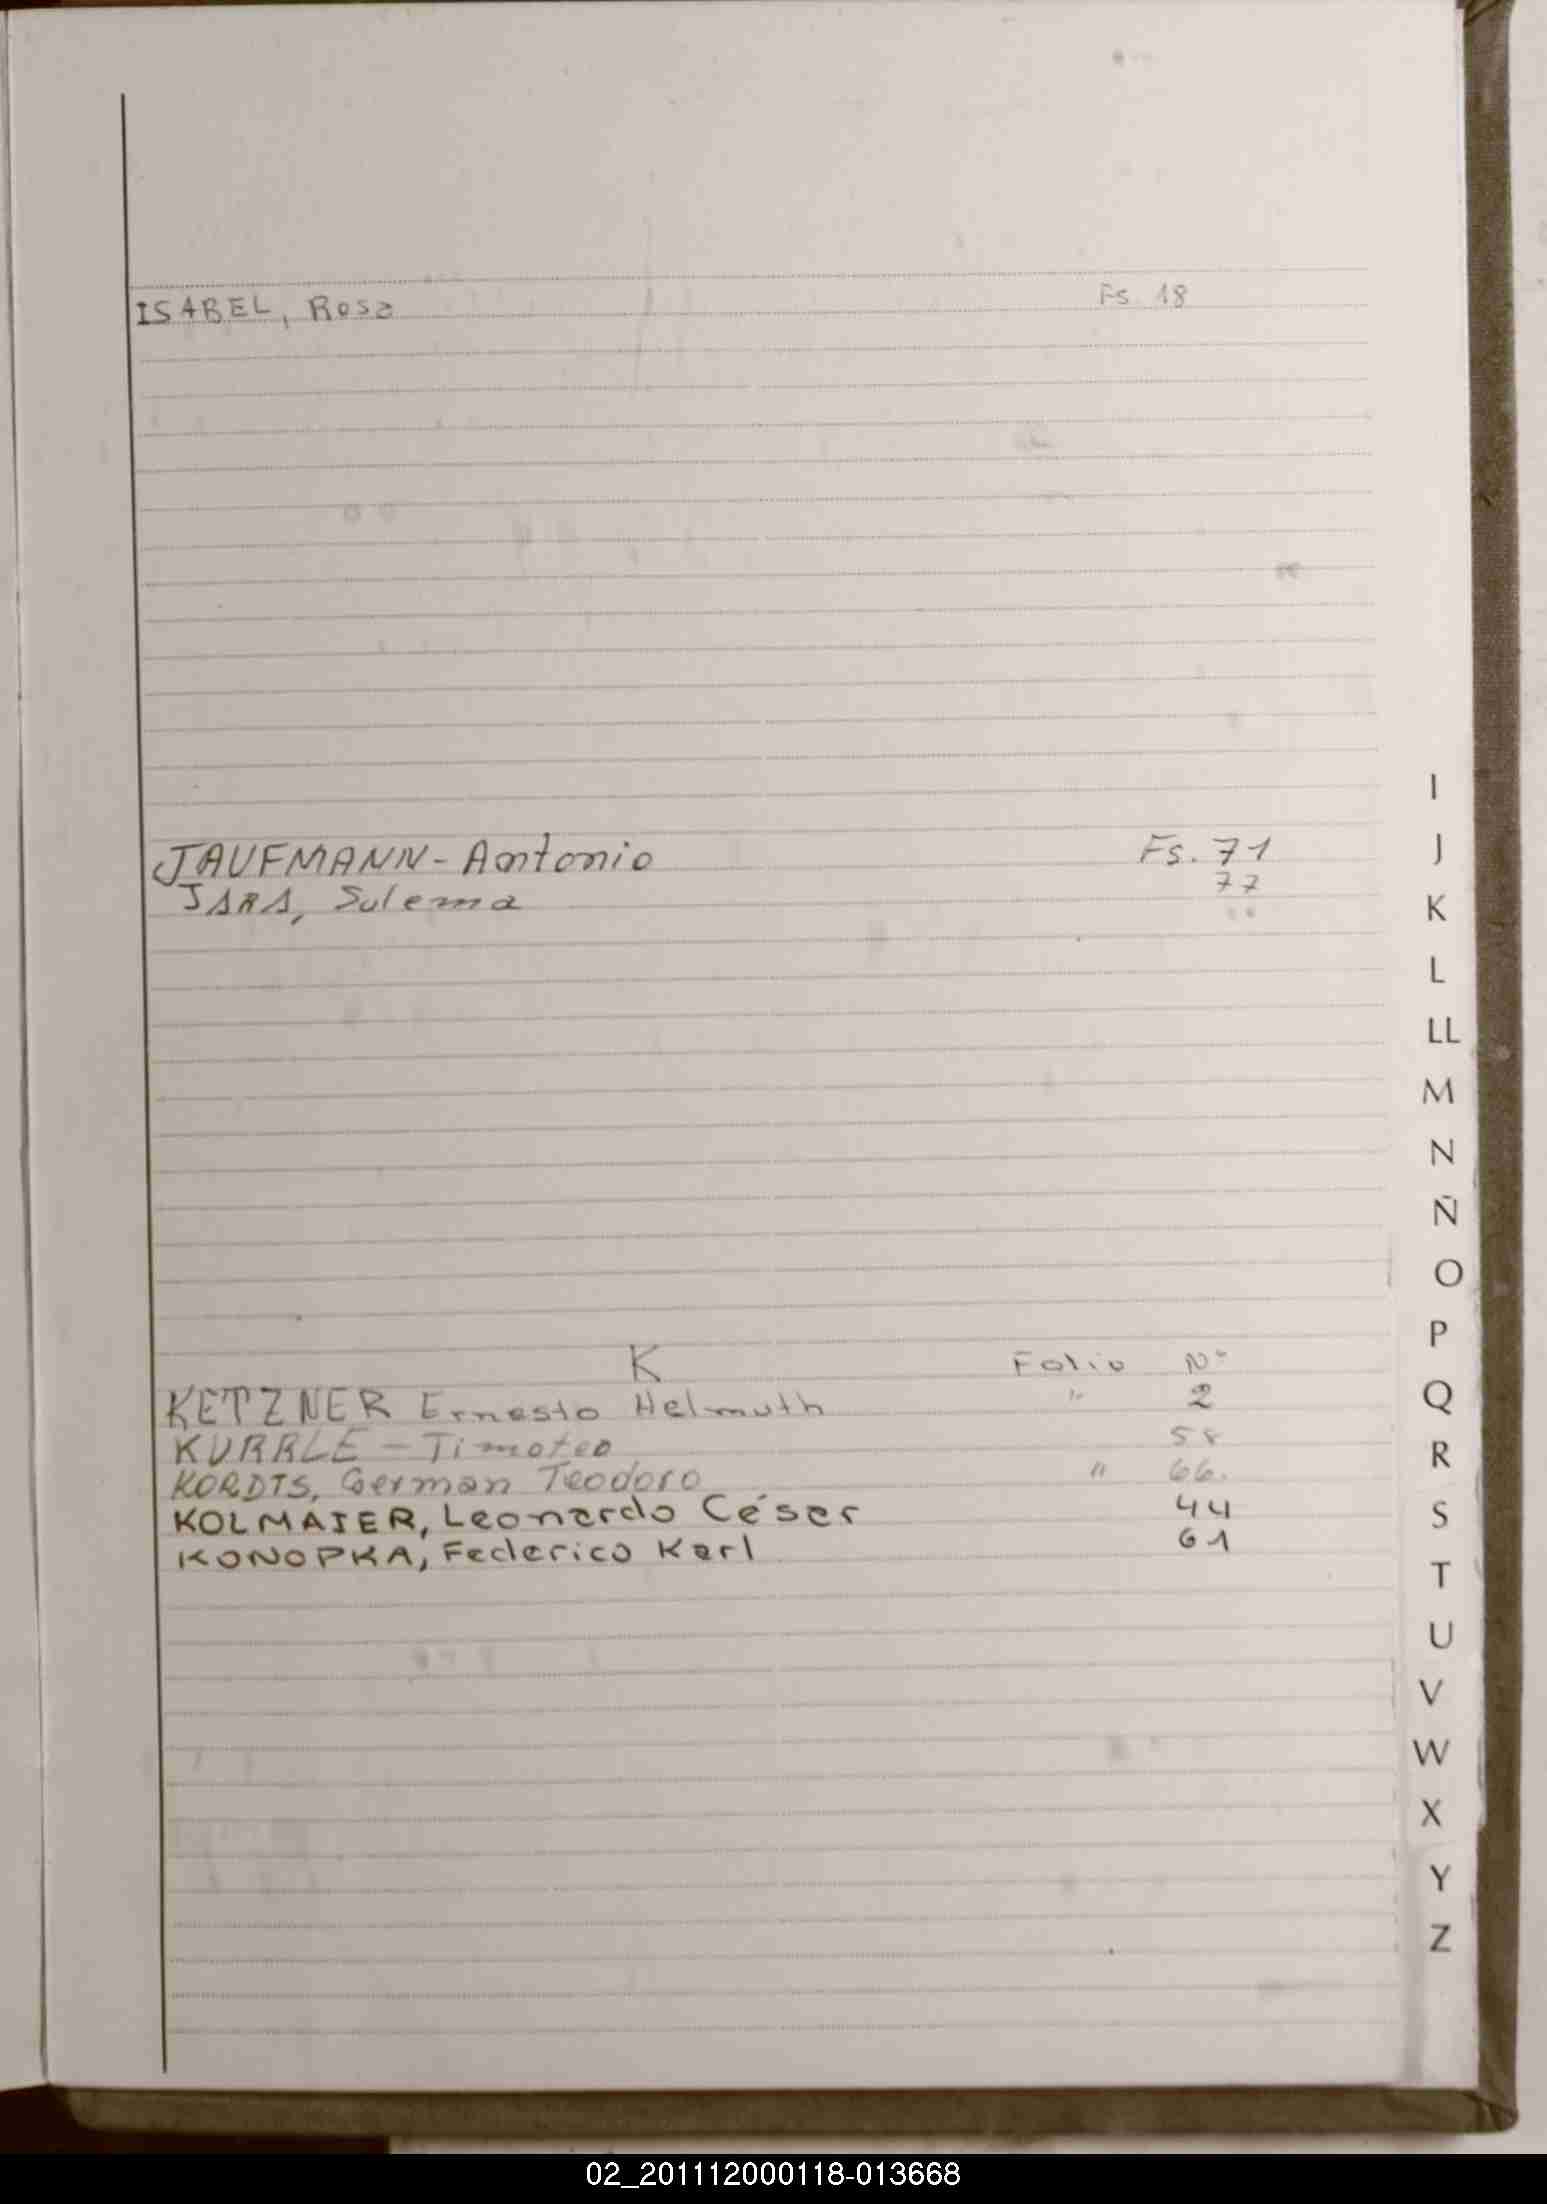 ISABEL, Rosa Fs. 18
JAUFMANN - Antonio Fs. 71
JARA, Sulema 77
K Folio Nº
KETZNER Ernesto Helmuth " 2
KURRLE - Timoteo 58
KORDTS, German Teodoro " 66.
KOLMAIER, Leonardo César 44
KONOPKA, Federico Karl 61
I
J
K
L
LL
M
N
Ñ
O
P
Q
R
S
T
U
V
W
X
Y
Z
02_201112000118-013668